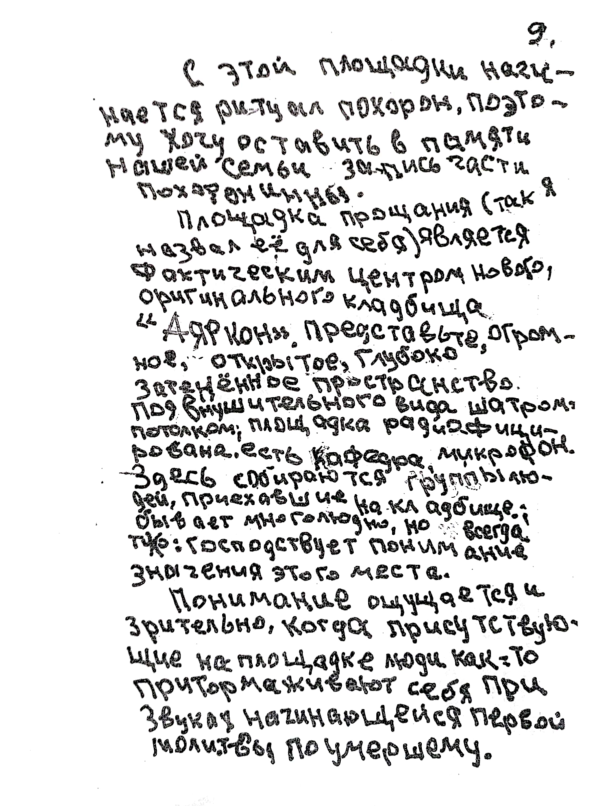 9.
С этой площадки начи-
нается ритуал похорон, поэто-
му хочу оставить в памяти
нашей семьи запись части
похоронины.
Площадка прощания (так я
назвал её для себя) является
фактическим центром нового,
оригинального кладбища
"Аяркон". Представьте, огром-
ное, открытое, глубоко
затенённое пространство.
Под внушительного вида шатром-
потолком; площадка радиофици-
рована. есть кафедра, микрофон.
Здесь собираются группы лю-
дей, приехавшие на кладбище;
бывает многолюдно, но всегда
тихо: господствует понимание
значения этого места.
Понимание ощущается и
зрительно, когда присутствую-
щие на площадке люди как-то
притормаживают себя при
звуках начинающейся первой
молитвы по умершему.